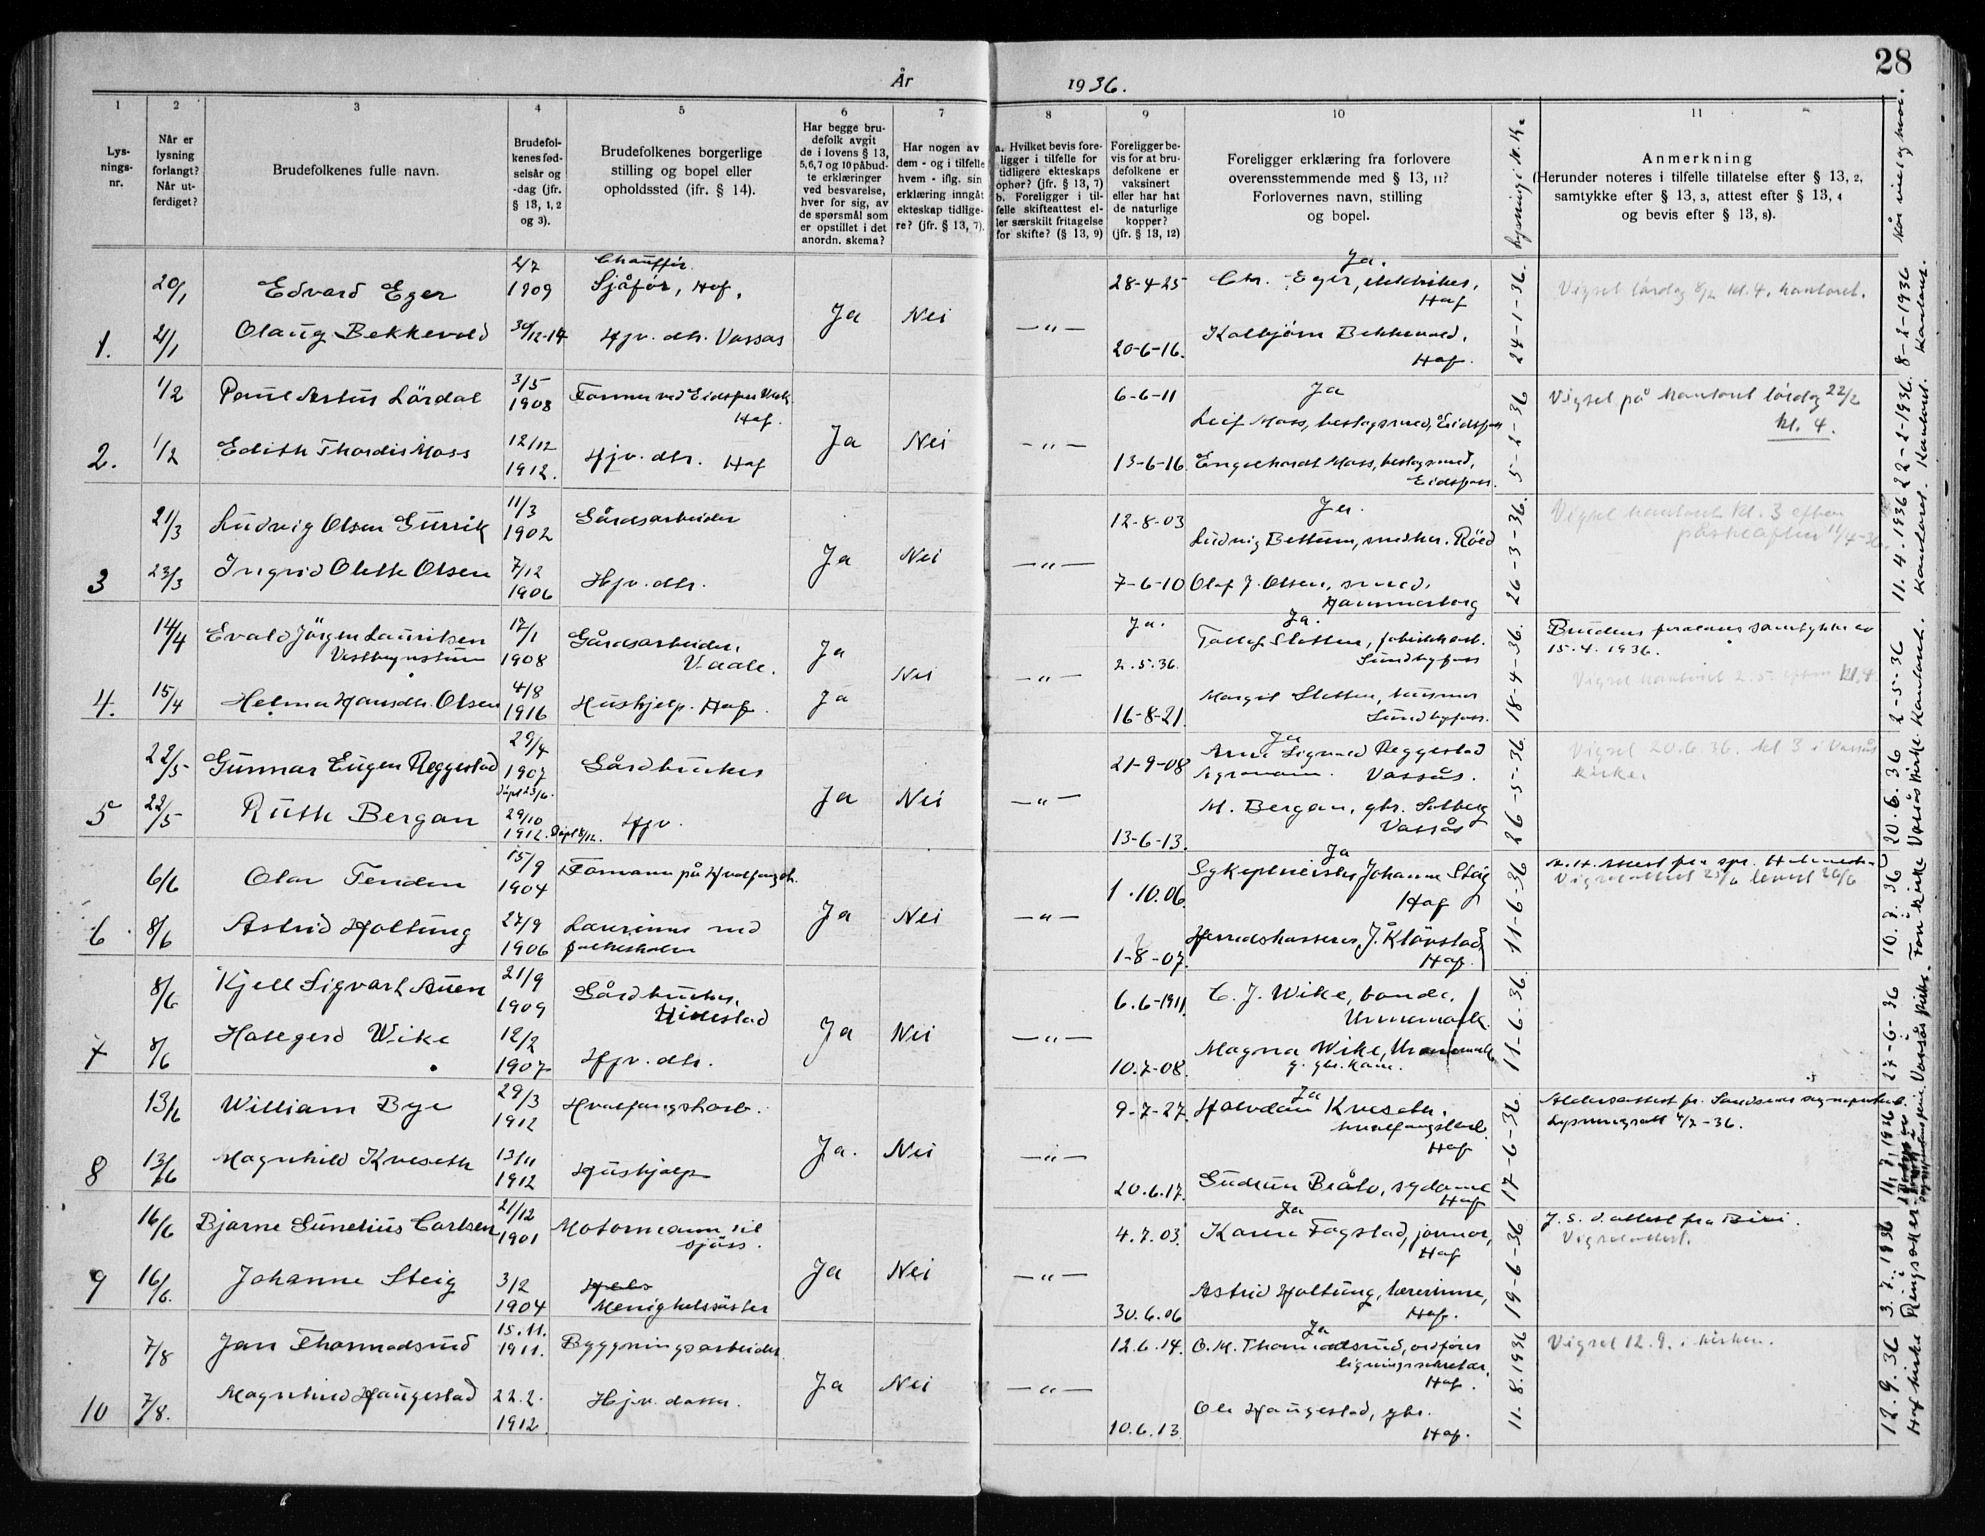 28
År 1936.
1 2 3 4 5 6 7 8 9 10 11
Lys-
nings-
nr.
Når er
lysning
forlangt?
Når ut-
ferdiget?
Brudefolkenes fulle navn.
Brudefol-
kenes fød-
selsår og
-dag (jfr.
§ 13, 1, 2
og 3).
Brudefolkenes borgerlige
stilling og bopel eller
opholdssted (ifr. § 14).
Har begge bru-
defolk avgit
de i lovens § 13,
5, 6, 7 og 10 påbud-
te erklæringer
ved besvarelse,
hver for sig, av
de spørsmål som
er opstillet i det
anordn. skema?
Har nogen av
dem - og i tilfelle
hvem - iflg. sin
erklæring inngåt
ekteskap tidlige-
re? (jfr. § 13, 7).
a. Hvilket bevis fore-
ligger i tilfelle for
tidligere ekteskaps
ophør? (jfr. § 13, 7)
b. Foreligger i til-
felle skifteattest el-
ler særskilt fritagelse
for skifte? (§ 13, 9)
Foreligger be-
vis for at bru-
defolkene er
vaksinert
eller har hat
de naturlige
kopper?
(jfr. § 13, 12)
Foreligger erklæring fra forlovere
overensstemmende med § 13, 11?
Forlovernes navn, stilling
og bopel.
Lysning i N. K.
Anmerkning
(Herunder noteres i tilfelle tillatelse efter § 13, 2,
samtykke efter § 13, 3, attest efter § 13, 4
og bevis efter § 13, 8).
Når viet og hvor.
1.
20/1 Edvard Eger 2/7 1909 Chauffør. Sjåfør, Hof.
21/1 Olaug Bekkevold 30/12-14 Hjv. dtr. Vassås
Ja Nei — " —
28-4-25 Ja. Chr. Eger, elektriker,
Hof
20-6-16. Kolbjørn Bekkevold,
Hof.
24-1-36.
Vigsel lördag 8/2 kl. 4. kontoret.
8-2-1936 Kontoret.
2.
1/2 Paul Artur Lördal 3/5 1908 Former ved Eidsfoss Verk
Hof.
1/2 Edith Thordis Moss 12/12 1912. Hjv. dtr. Hof
Ja Nei — " —
6-6-11 Ja
Leif Moss, beslagsmed, Eidsfoss
13-6-16. Engelhardt Moss, beslagsmed,
Eidsfoss.
5-2-36
Vigsel på kontoret lördag 22/2
kl. 4.
22-2-1936. Kontoret.
3
21/3 Ludvig Olsen Gurrik 11/3 1902 Gårdsarbeider
23/3 Ingrid Olette Olsen 7/12 1906 Hjv. dtr.
Ja Nei — " —
12-8-03 Ja.
Ludvig Bettum, snekker. Röed
7-6-10 Olaf J. Olsen, smed,
Hammerborg
26-3-36.
Vigsel kontoret kl. 3 eften
påskeaften 11/4-36.
11.4.1936 Kontoret.
4.
14/4 Evald Jörgen Lauritsen 17/1 1908 Gårdsarbeider,
Vaale.
15/4 Helma Hansdtr. Olsen 4/8 1916 Hushjelp. Hof.
Ja
Ja Nei — " —
Ja. 2.5.36. Ja.
Tollef Sletten, fabrikkarb.
Sundbyfoss
16-8-21. Margit Sletten, husmor
Sundbyfoss.
18-4-36.
Brudens foreldres samtykke av
15.4.1936.
Vigsel kontoret 2.5. eften kl. 4
2-5-36 Kontoret.
5
22/5 Gunnar Eugen Reggestad 29/4 1907 Gårdbruker
döpt 23/6.
22/5 Ruth Bergan 29/10 1912. Döpt 8/12. Hjv.
Ja Nei — " —
21-9-08 Ja
Arne Sigurd Reggestad
Agronom. Vassås.
13-6-13. M. Bergan, gbr. Solberg
Vassås
26-5-36.
Vigsel 20.6.36. kl 3 i Vassås
kirke.
20.6.36 Vassås kirke
6
6/6 Olav Tenden 15/9 1904 Formann på Hvalfangstk.
8/6 Astrid Holtung 27/9 1906 Lærerinne ved
folkeskolen
Ja Nei — " —
1.10.06. Ja
Sykepleierske Johanne Steig
Hof
1-8-07. Herredskasserer, J. Klövstad
Hof.
11-6-36
Vigselattest 25/6 levert 26/6
10.7.36
7
8/6 Kjell Sigvart Auen 21/9 1909 Gårdbruker,
Hillestad
8/6 Hallgerd Wike 12/2 1907 Hjv. dtr.
Ja Nei — " —
6.6-1911 C. J. Wike, bonde.
Unnemark.
10.7-08. Magna Wike, Unnemark
g. gbr. kone.
11-6-36
27-6-36 Vassås kirke.
8
13/6 William Bye 29/3 1912 Hvalfangstarb.
13/6 Magnhild Kveseth 13/11 1912 Hushjelp
Ja. Nei — " —
9-7-27. Ja
Halvdan Kveseth.
hvalfangstarb.
Hof
20.6.17. Gudrun Bråto, sydame
Hof
17-6-36.
Lysningsatt 4/7-36.
11.7.1936
9
16/6 Bjarne Sunelius Carlsen 21/12 1901 Motormann til
sjöss.
16/6. Johanne Steig 3/2 1904 Menighetssöster
Ja Nei — " —
4.7.03. Ja
Karen Fogstad, jormor,
Hof
30.6.06 Astrid Holtung, lærerinne,
Hof.
19-6-36
J. S. d. attest fra Biri.
Vigselattest.
3.7.1936 Ringsaker
10
7/8 Jan Thormodsrud 15.11. 1911. Byggningsarbeider.
7/8. Magnhild Haugestad 22.2. 1912 Hjv. datter.
Ja Nei — " —
12.6.14. Ja
O. M. Thormodsrud, ordfører
ligningssekretær,
Hof.
10.6.13 Ole Haugestad, gbr.
Hof.
11.8.1936
Vigsel 12.9. i kirken.
12.9.36 Hof kirke